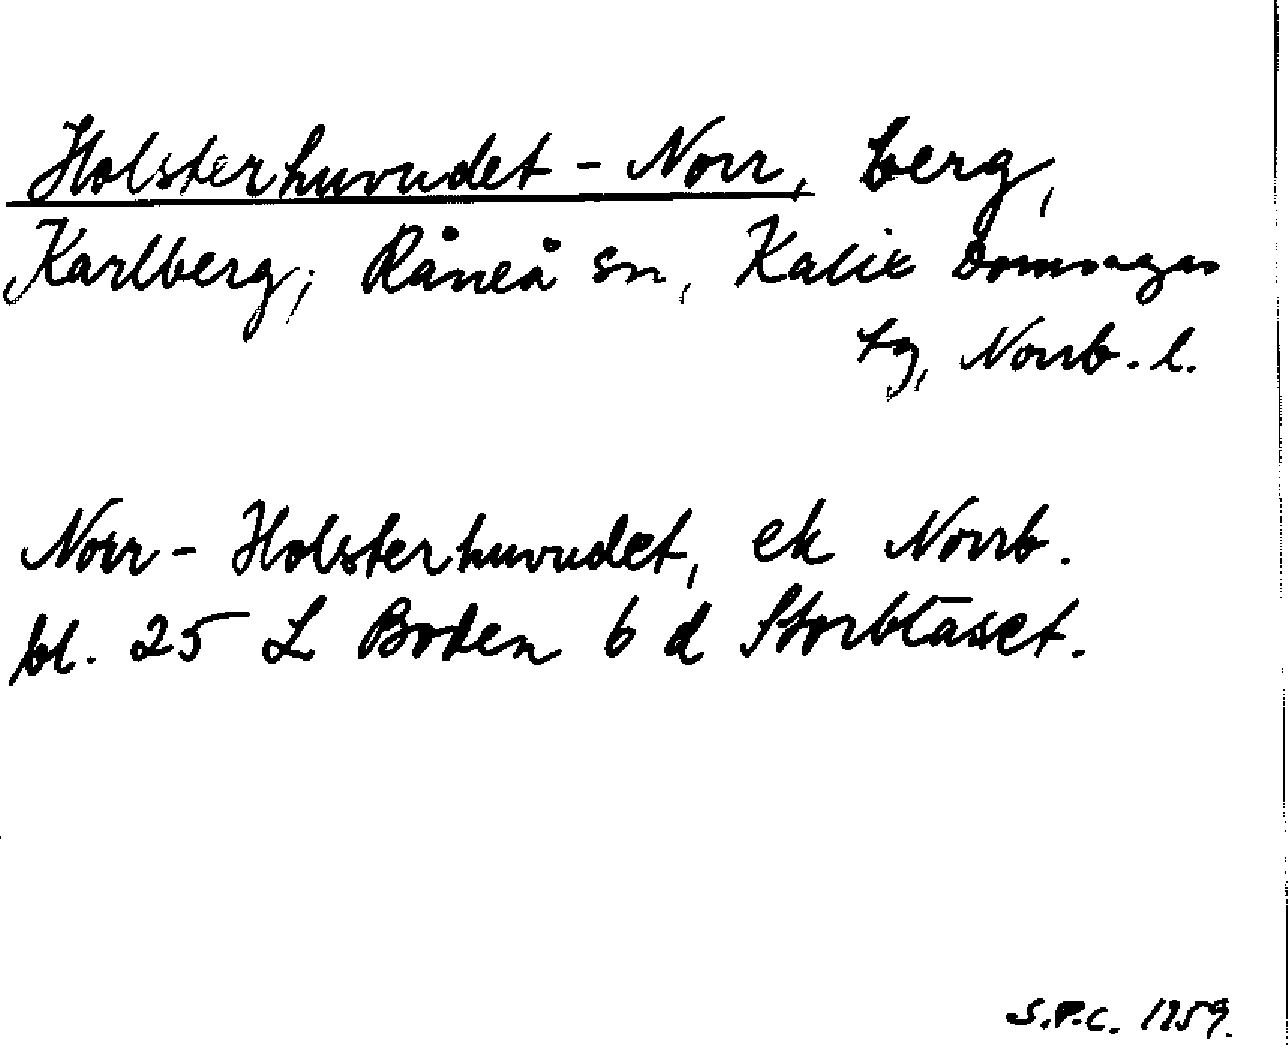 Holsterhuvudet - Norr, berg,
Karlberg, Råneå sn, Kalix Domsagas
tg, Norrb. l.
Norr - Holsterhuvudet, ek Norrb.
bl. 25 L Boden 6 d Storblåset.
S.P.C. 1959.